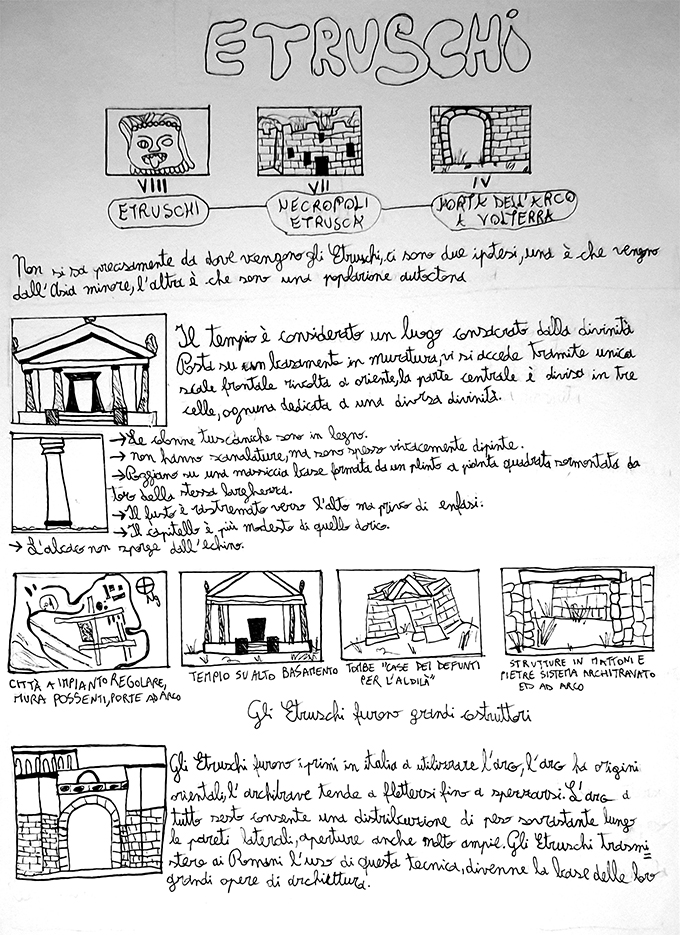 ETRUSCHI
VIII
VII
IV
ETRUSCHI
NECROPOLI
ETRUSCA
PORTA DELL'ARCO
A VOLTERRA
Non si sa precisamente da dove vengono gli Etruschi, ci sono due ipotesi, una è che vengono
dall'Asia minore, l'altra è che sono una popolazione autoctona
Il tempio è considerato un luogo consacrato dalla divinità
Posta su un basamento in muratura, vi si accede tramite unica
scale frontale rivolta a oriente, la parte centrale è divisa in tre
celle, ognuna dedicata a una diversa divinità.
→ Le colonne tuscaniche sono in legno.
→ non hanno scanalature, ma sono spesso vivacemente dipinte.
→ Poggiano su una massiccia base formata da un plinto a pianta quadrata sormontata da
toro della stessa larghezza.
→ Il fusto è rastremato verso l'alto ma privo di enfasi.
→ Il capitello è più modesto di quello dorico.
→ L'abaco non sporge dall'echino.
Ng
CITTÀ A IMPIANTO REGOLARE,
MURA POSSENTI, PORTE AD ARCO
TEMPIO SU ALTO BASAMENTO
TOMBE "CASE DEI DEFUNTI
PER L'ALDILÀ"
STRUTTURE IN MATTONI E
PIETRE SISTEMA ARCHITRAVATO
ED AD ARCO
Gli Etruschi furono grandi costruttori
Gli Etruschi furono i primi in italia a utilizzare l'arco, l'arco ha origini
orientali, l'architrave tende a flettersi fino a spezzarsi. L'arco a
tutto sesto consente una distribuzione di peso sovrastante lungo
le pareti laterali, aperture anche molto ampie. Gli Etruschi trasmi=
stero ai Romani l'uso di questa tecnica, divenne la base delle loro
grandi opere di architettura.